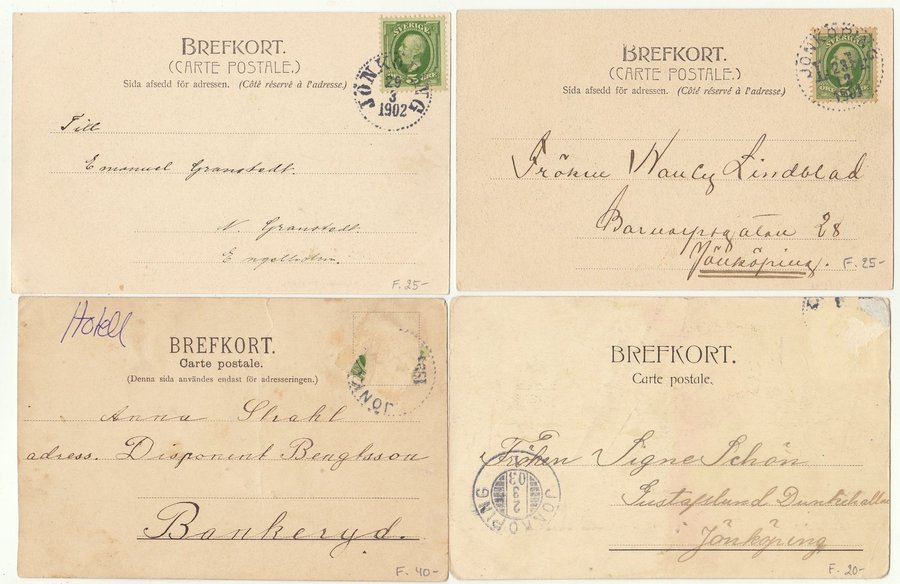 BREFKORT.
(CARTE POSTALE.)
Sida afsedd för adressen. (Côté réservé à l'adresse.)
SVERIGE
5
JÖNKÖPING
29
3
1902
Till
Emanuel Granstedt.
N. Granstedt.
Engelholm.
F. 25-
BREFKORT.
(CARTE POSTALE.)
Sida afsedd för adressen. (Côté réservé à l'adresse.)
JÖNKÖPING
Fröken Lindblad
Barnarpsgatan 28
Jönköping.
F. 25-
Hotell
BREFKORT.
Carte postale.
(Denna sida användes endast för adresseringen.)
JÖNK
Anna Strahl
adress. Disponent Bengtsson
Bankeryd.
F. 40-
BREFKORT.
Carte postale.
JÖNKÖPING
03
Fröken Signe Schön
Gustafslund Dunkehalla
Jönköping
F. 20-